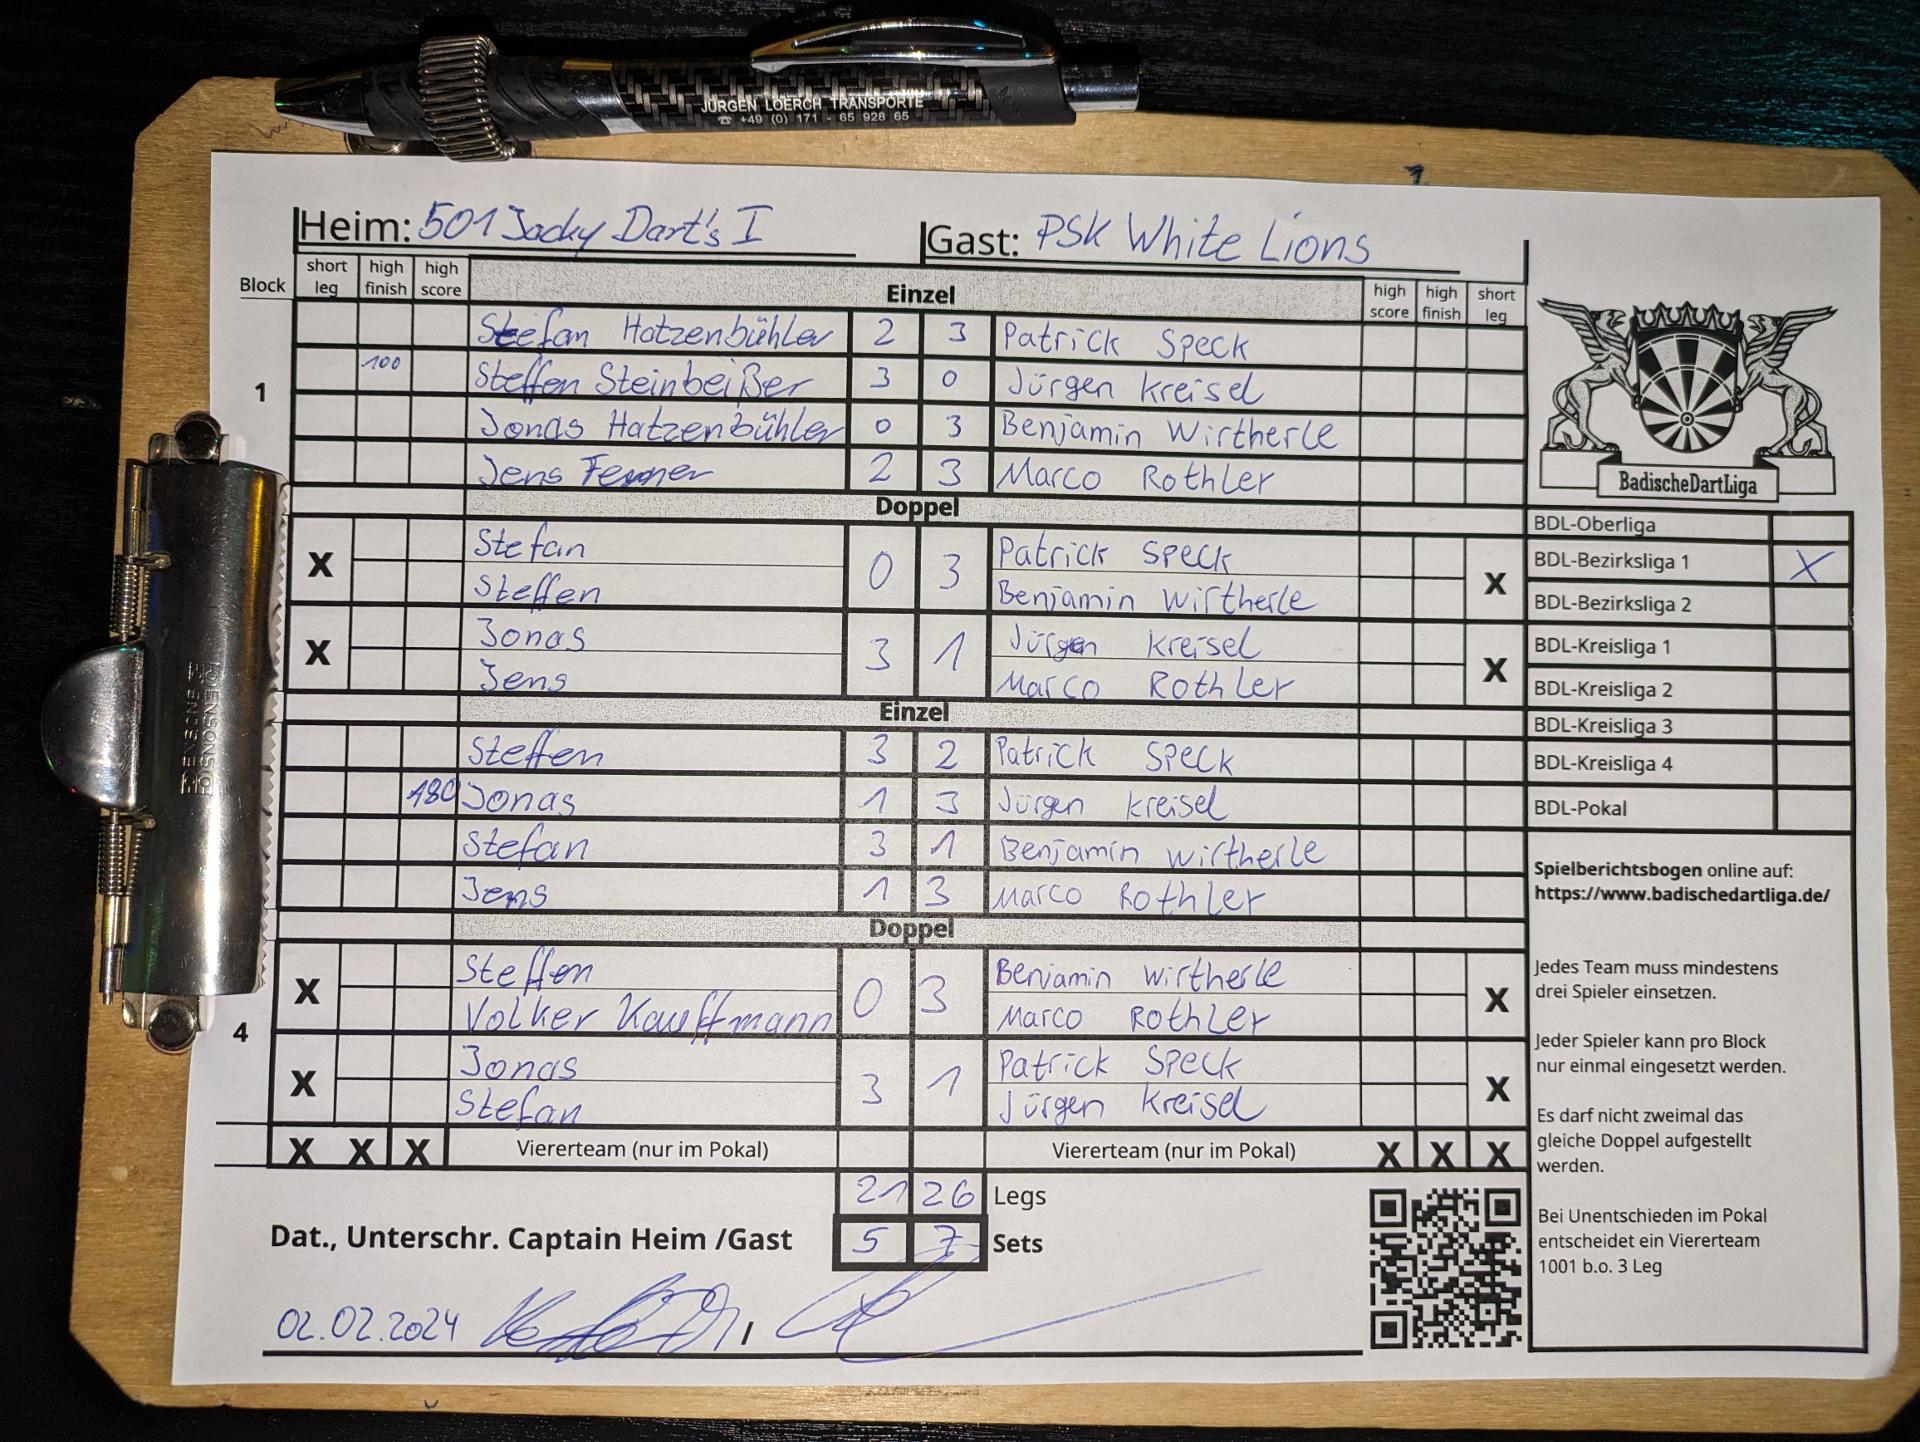 JÜRGEN LOERCH TRANSPORTE
☎ +49 (0) 171 - 65 928 65
Heim: 501 Jacky Dart's I Gast: PSK White Lions
Block short leg high finish high score Einzel high score high finish short leg
Stefan Hatzenbühler 2 3 Patrick Speck
1 100 Steffen Steinbeißer 3 0 Jürgen Kreisel
Jonas Hatzenbühler 0 3 Benjamin Wirtherle
Jens 2 3 Marco Rothler
Doppel
X Stefan 0 3 Patrick Speck X
Steffen Benjamin Wirtherle
X Jonas 3 1 Jürgen Kreisel X
Jens Marco Rothler
Einzel
Steffen 3 2 Patrick Speck
180 Jonas 1 3 Jürgen Kreisel
Stefan 3 1 Benjamin Wirtherle
Jens 1 3 Marco Rothler
Doppel
X Steffen 0 3 Benjamin Wirtherle X
Volker Kauffmann Marco Rothler
4
X Jonas 3 1 Patrick Speck X
Stefan Jürgen Kreisel
X X X Viererteam (nur im Pokal) Viererteam (nur im Pokal) X X X
21 26 Legs
Dat., Unterschr. Captain Heim /Gast 5 7 Sets
02.02.2024 /
BadischeDartLiga
BDL-Oberliga
BDL-Bezirksliga 1 X
BDL-Bezirksliga 2
BDL-Kreisliga 1
BDL-Kreisliga 2
BDL-Kreisliga 3
BDL-Kreisliga 4
BDL-Pokal
Spielberichtsbogen online auf:
https://www.badischedartliga.de/
Jedes Team muss mindestens
drei Spieler einsetzen.
Jeder Spieler kann pro Block
nur einmal eingesetzt werden.
Es darf nicht zweimal das
gleiche Doppel aufgestellt
werden.
Bei Unentschieden im Pokal
entscheidet ein Viererteam
1001 b.o. 3 Leg